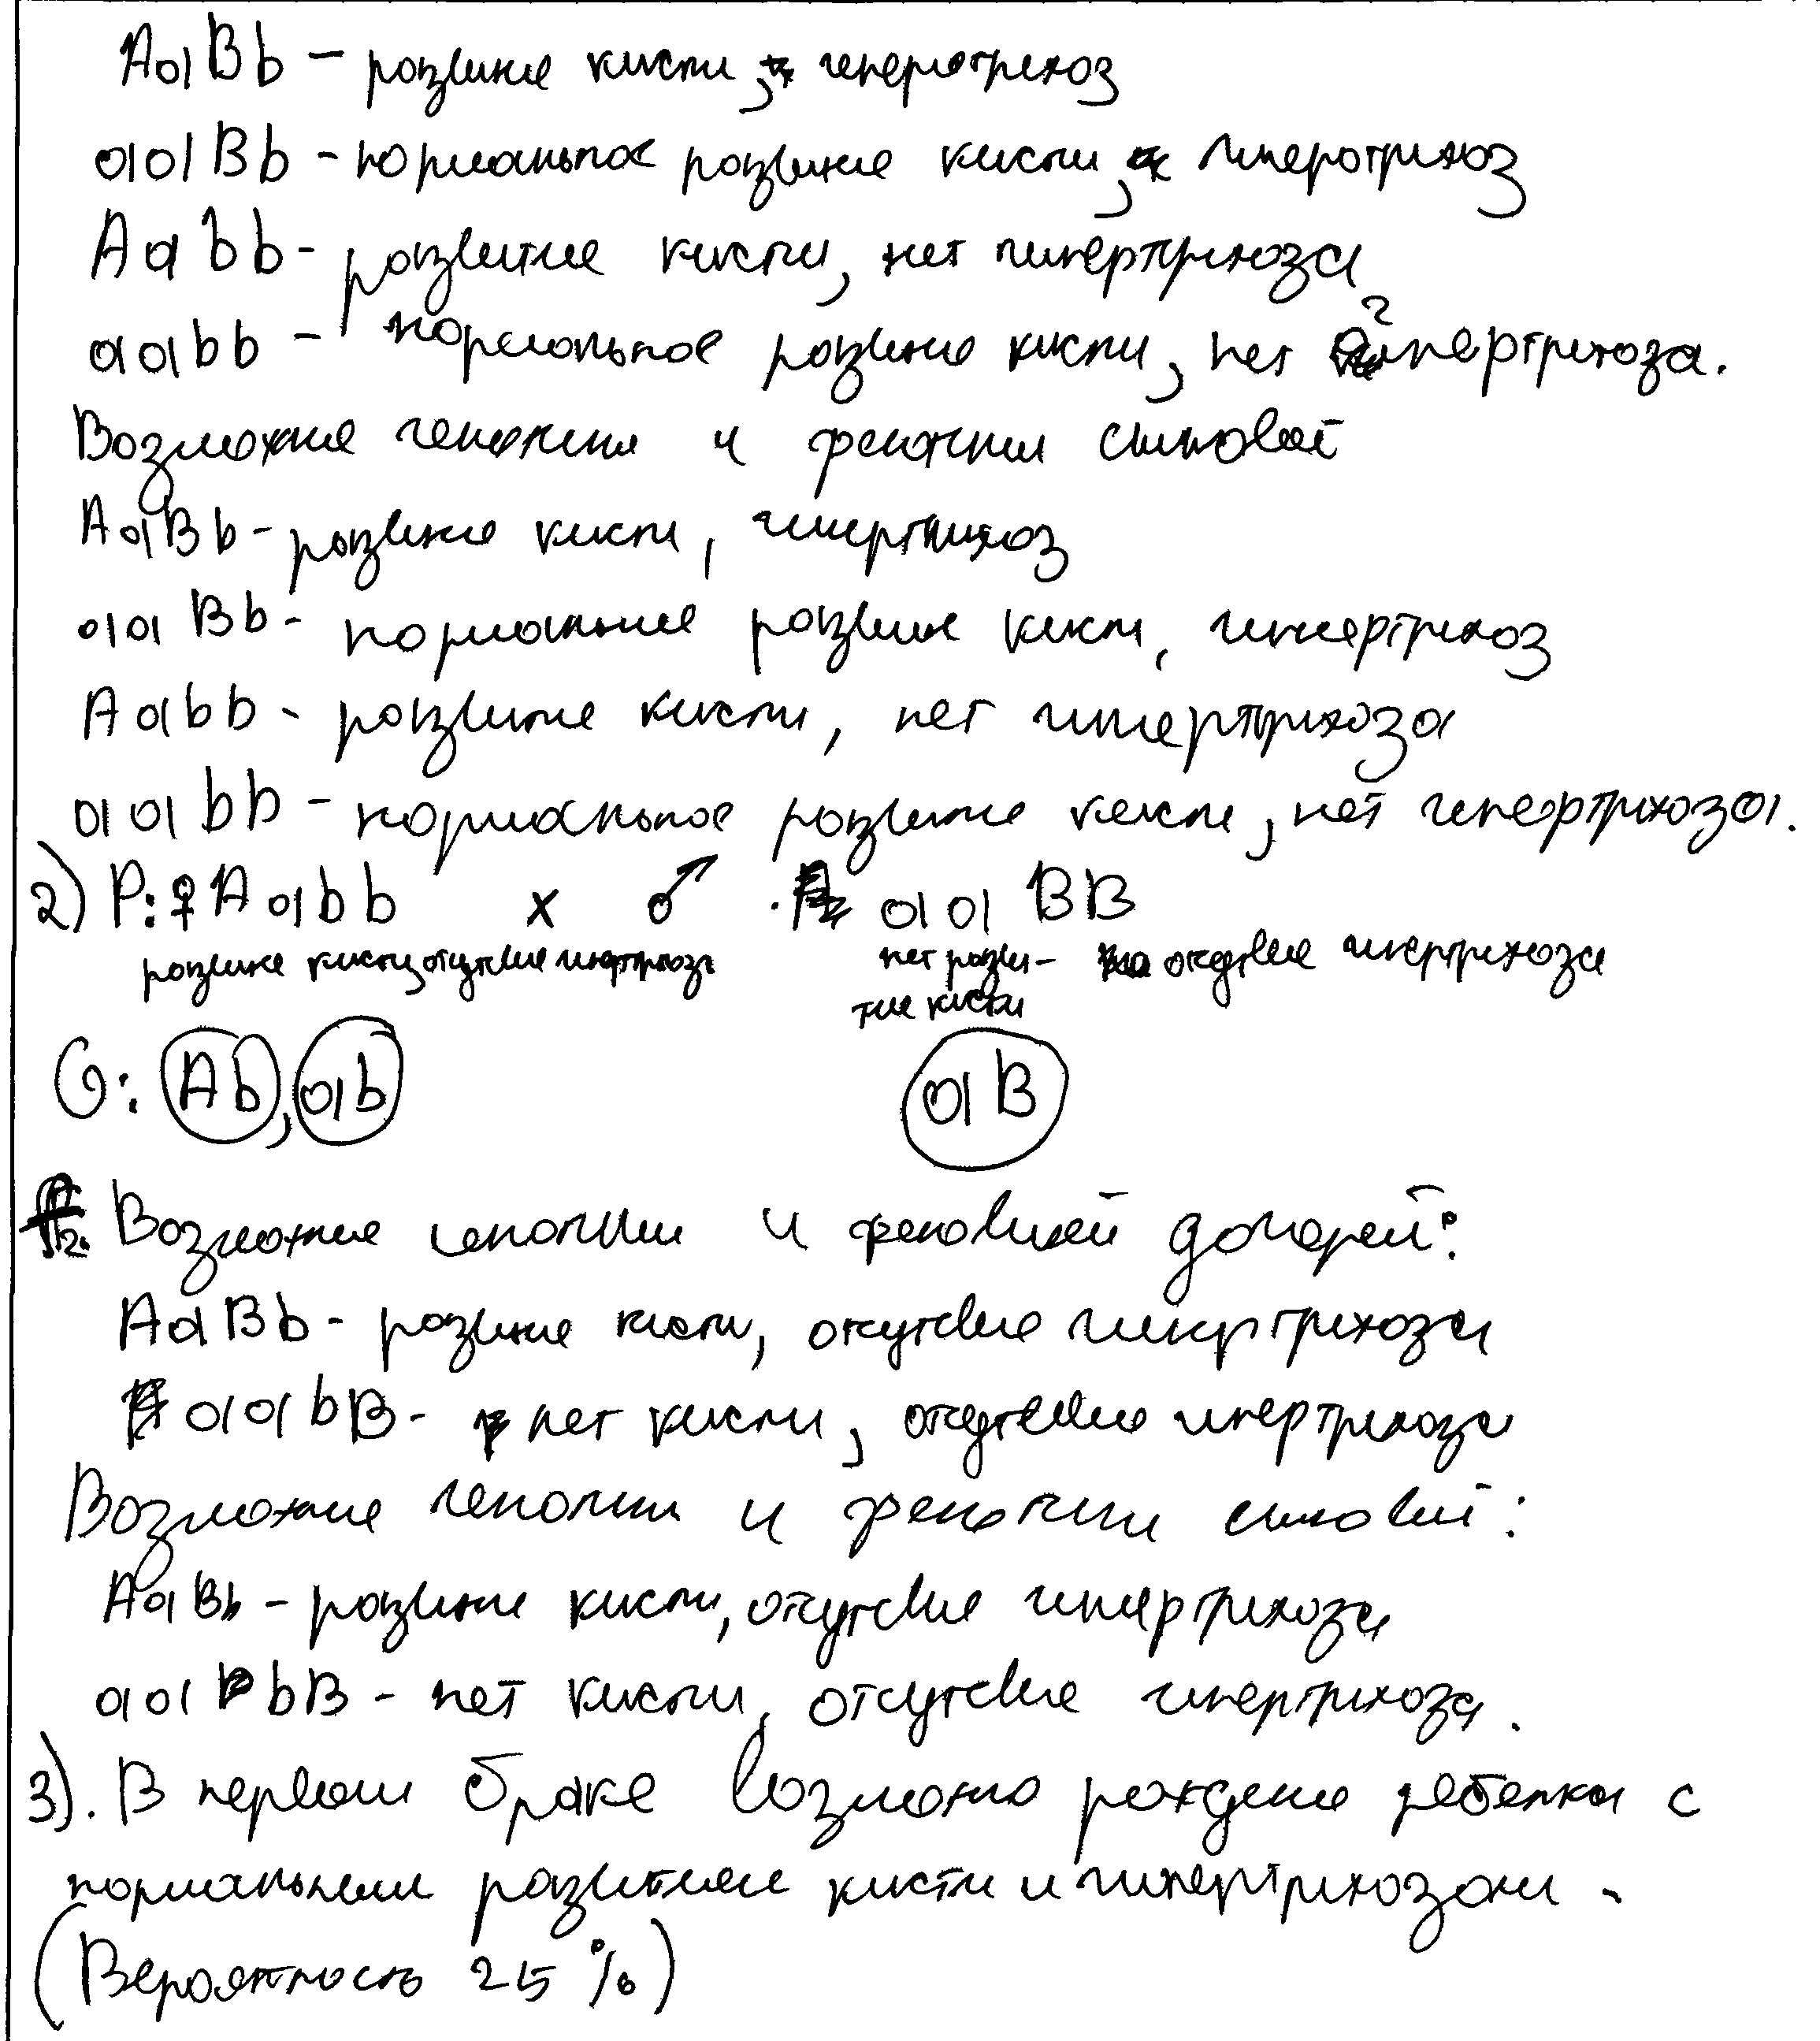 AaBb - развитие кисти, гипертрихоз
aaBb - нормальное развитие кисти, гипертрихоз
Aabb - развитие кисти, нет гипертрихоза
aabb - нормальное развитие кисти, нет гипертрихоза.
Возможные генотипы и фенотипы сыновей
AaBb - развитие кисти, гипертрихоз
aaBb - нормальное развитие кисти, гипертрихоз
Aabb - развитие кисти, нет гипертрихоза
aabb - нормальное развитие кисти, нет гипертрихоза.
2) P: ♀ Aabb x ♂ aaBB
развитие кисти, отсутствие гипертрихоза нет разви- отсутствие гипертрихоза
тие кисти
G: Ab, ab aB
Возможные генотипы и фенотипы дочерей:
AaBb - развитие кисти, отсутствие гипертрихоза
aabB - нет кисти, отсутствие гипертрихоза
Возможные генотипы и фенотипы сыновей:
AaBb - развитие кисти, отсутствие гипертрихоза
aabB - нет кисти, отсутствие гипертрихоза.
3). В первом браке возможно рождение ребенка с
нормальным развитием кисти и гипертрихозом -
(Вероятность 25%)